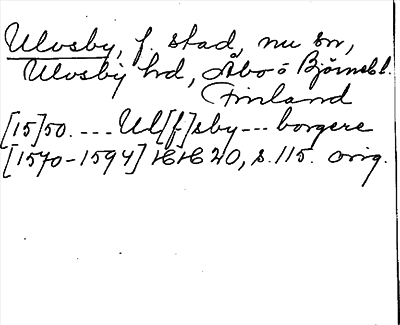 Ulvsby, f. stad, nu sn,
Ulvsby hd, Åbo o Björneb. l.
Finland
[15]50. --- Ul[f]sby --- borgere
[1570-1594] HH 20, s. 115. orig.